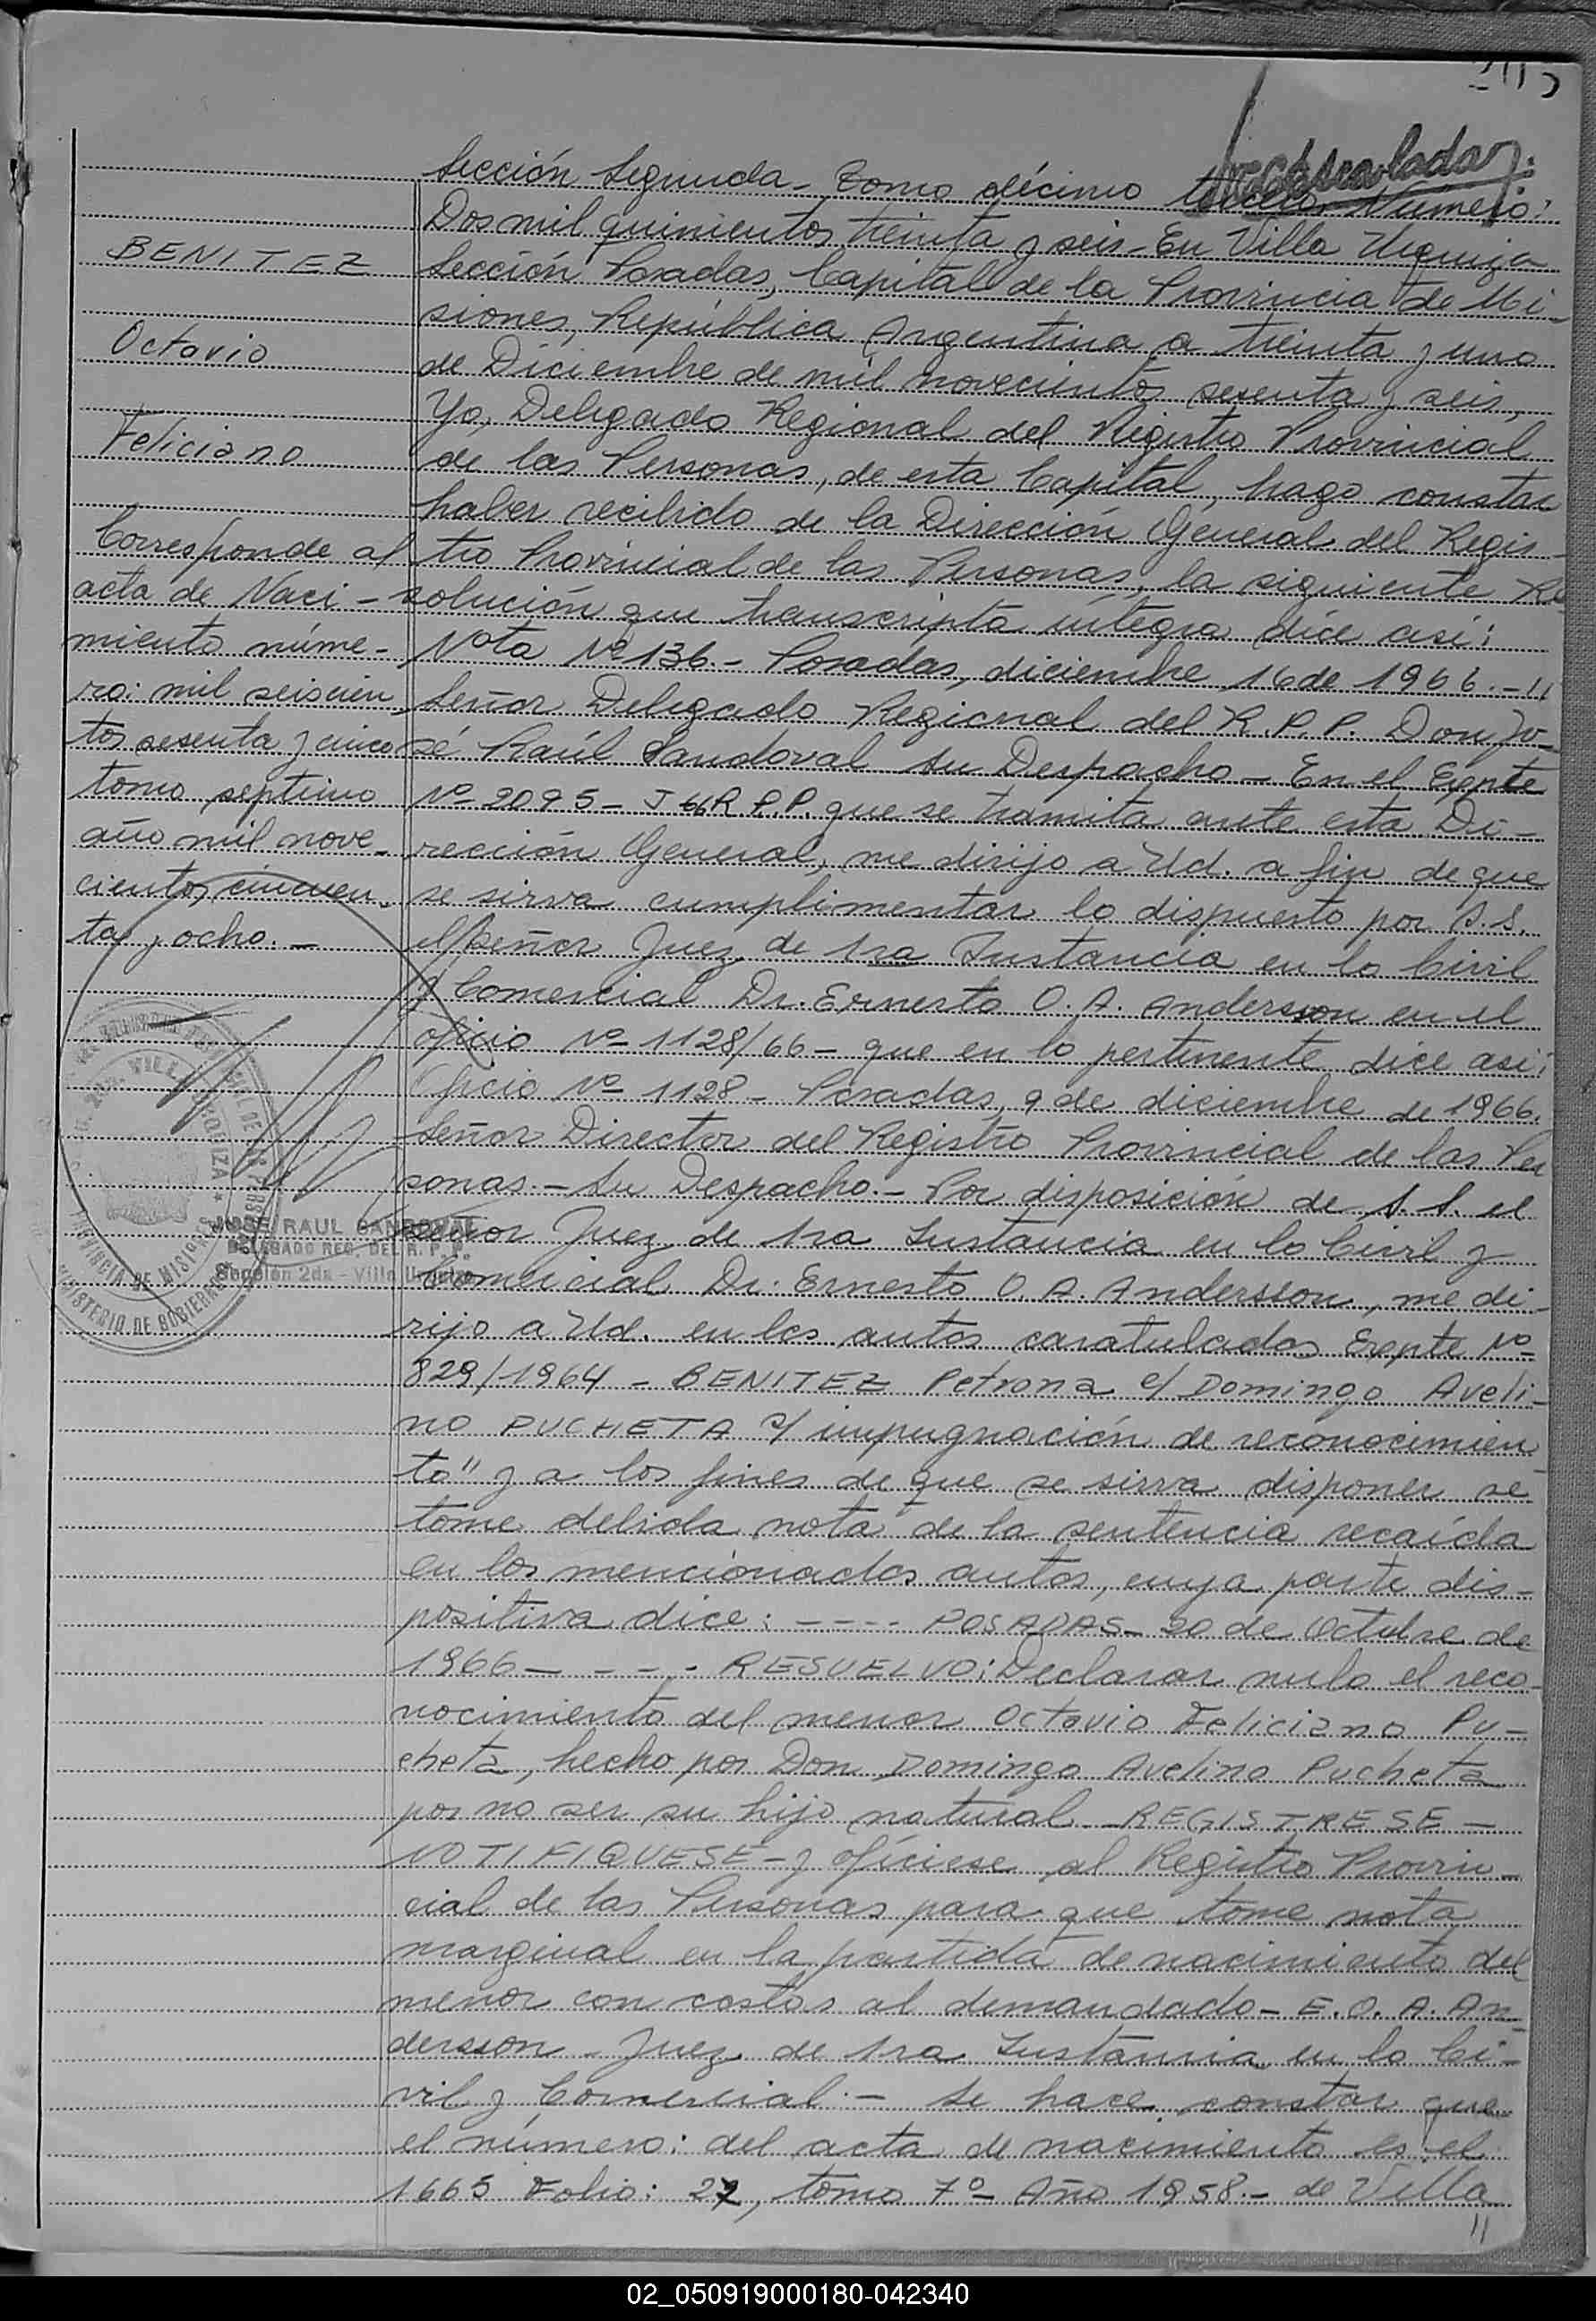 Sección Segunda - Tomo décimo tercero Número:
Dos mil quinientos treinta y seis - En Villa Urquiza
Sección Posadas, Capital de la Provincia de Mi-
siones, República Argentina a treinta y uno
de Diciembre de mil novecientos sesenta y seis,
Yo, Delegado Regional del Registro Provincial
de las Personas, de esta Capital, hago constar
haber recibido de la Dirección General del Regis-
tro Provincial de las Personas, la siguiente Re
solución que transcripta íntegra dice así:
Nota Nº 136 - Posadas, diciembre 16 de 1966.- //
Señor Delegado Regional del R.P.P. Don Jo-
sé Raúl Sandoval Su Despacho - En el Expte
Nº 2095 - J-66 R.P.P. que se tramita ante esta Di-
rección General, me dirijo a Ud. a fin de que
se sirva cumplimentar lo dispuesto por S.S.
el Señor Juez de 1ra Instancia en lo Civil
y Comercial Dr. Ernesto O. A. Andersson en el
oficio Nº 1128/66 - que en lo pertinente dice así:
Oficio Nº 1128 - Posadas, 9 de diciembre de 1966.
Señor Director del Registro Provincial de las Per
sonas.- Su Despacho.- Por disposición de S.S. el
señor Juez de 1ra Instancia en lo Civil y
Comercial Dr. Ernesto O. A. Andersson, me di-
rijo a Ud. en los autos caratulados Expte Nº
829/1964 - BENITEZ Petrona c/ Domingo Aveli-
no PUCHETA s/ impugnación de reconocimien-
to" y a los fines de que se sirva disponer se
tome debida nota de la sentencia recaída
en los mencionados autos, cuya parte dis-
positiva dice: ---- POSADAS - 20 de Octubre de
1966 - - - - - RESUELVO: Declarar nulo el reco-
nocimiento del menor Octavio Feliciano Pu-
cheta, hecho por Don Domingo Avelino Pucheta
por no ser su hijo natural - REGISTRESE -
NOTIFIQUESE - y ofíciese al Registro Provin-
cial de las Personas para que tome nota
marginal en la partida de nacimiento del
menor con costas al demandado - E. O. A. An-
dersson - Juez de 1ra Instancia en lo Ci-
vil y Comercial.- Se hace constar que
el número: del acta de nacimiento es el
1665 Folio: 27, tomo 7º - Año 1958.- de Villa
//
BENITEZ
Octavio
Feliciano
Corresponde al
acta de Naci-
miento núme-
ro: mil seiscien
tos sesenta y cinco
tomo septimo
año mil nove-
cientos cincuen-
ta y ocho.-
JOSE RAUL SANDOVAL
DELEGADO REG. DEL R. P. P.
Sección 2da - Villa Urquiza
PROVINCIA DE MISIONES
MINISTERIO DE GOBIERNO
02_050919000180-042340